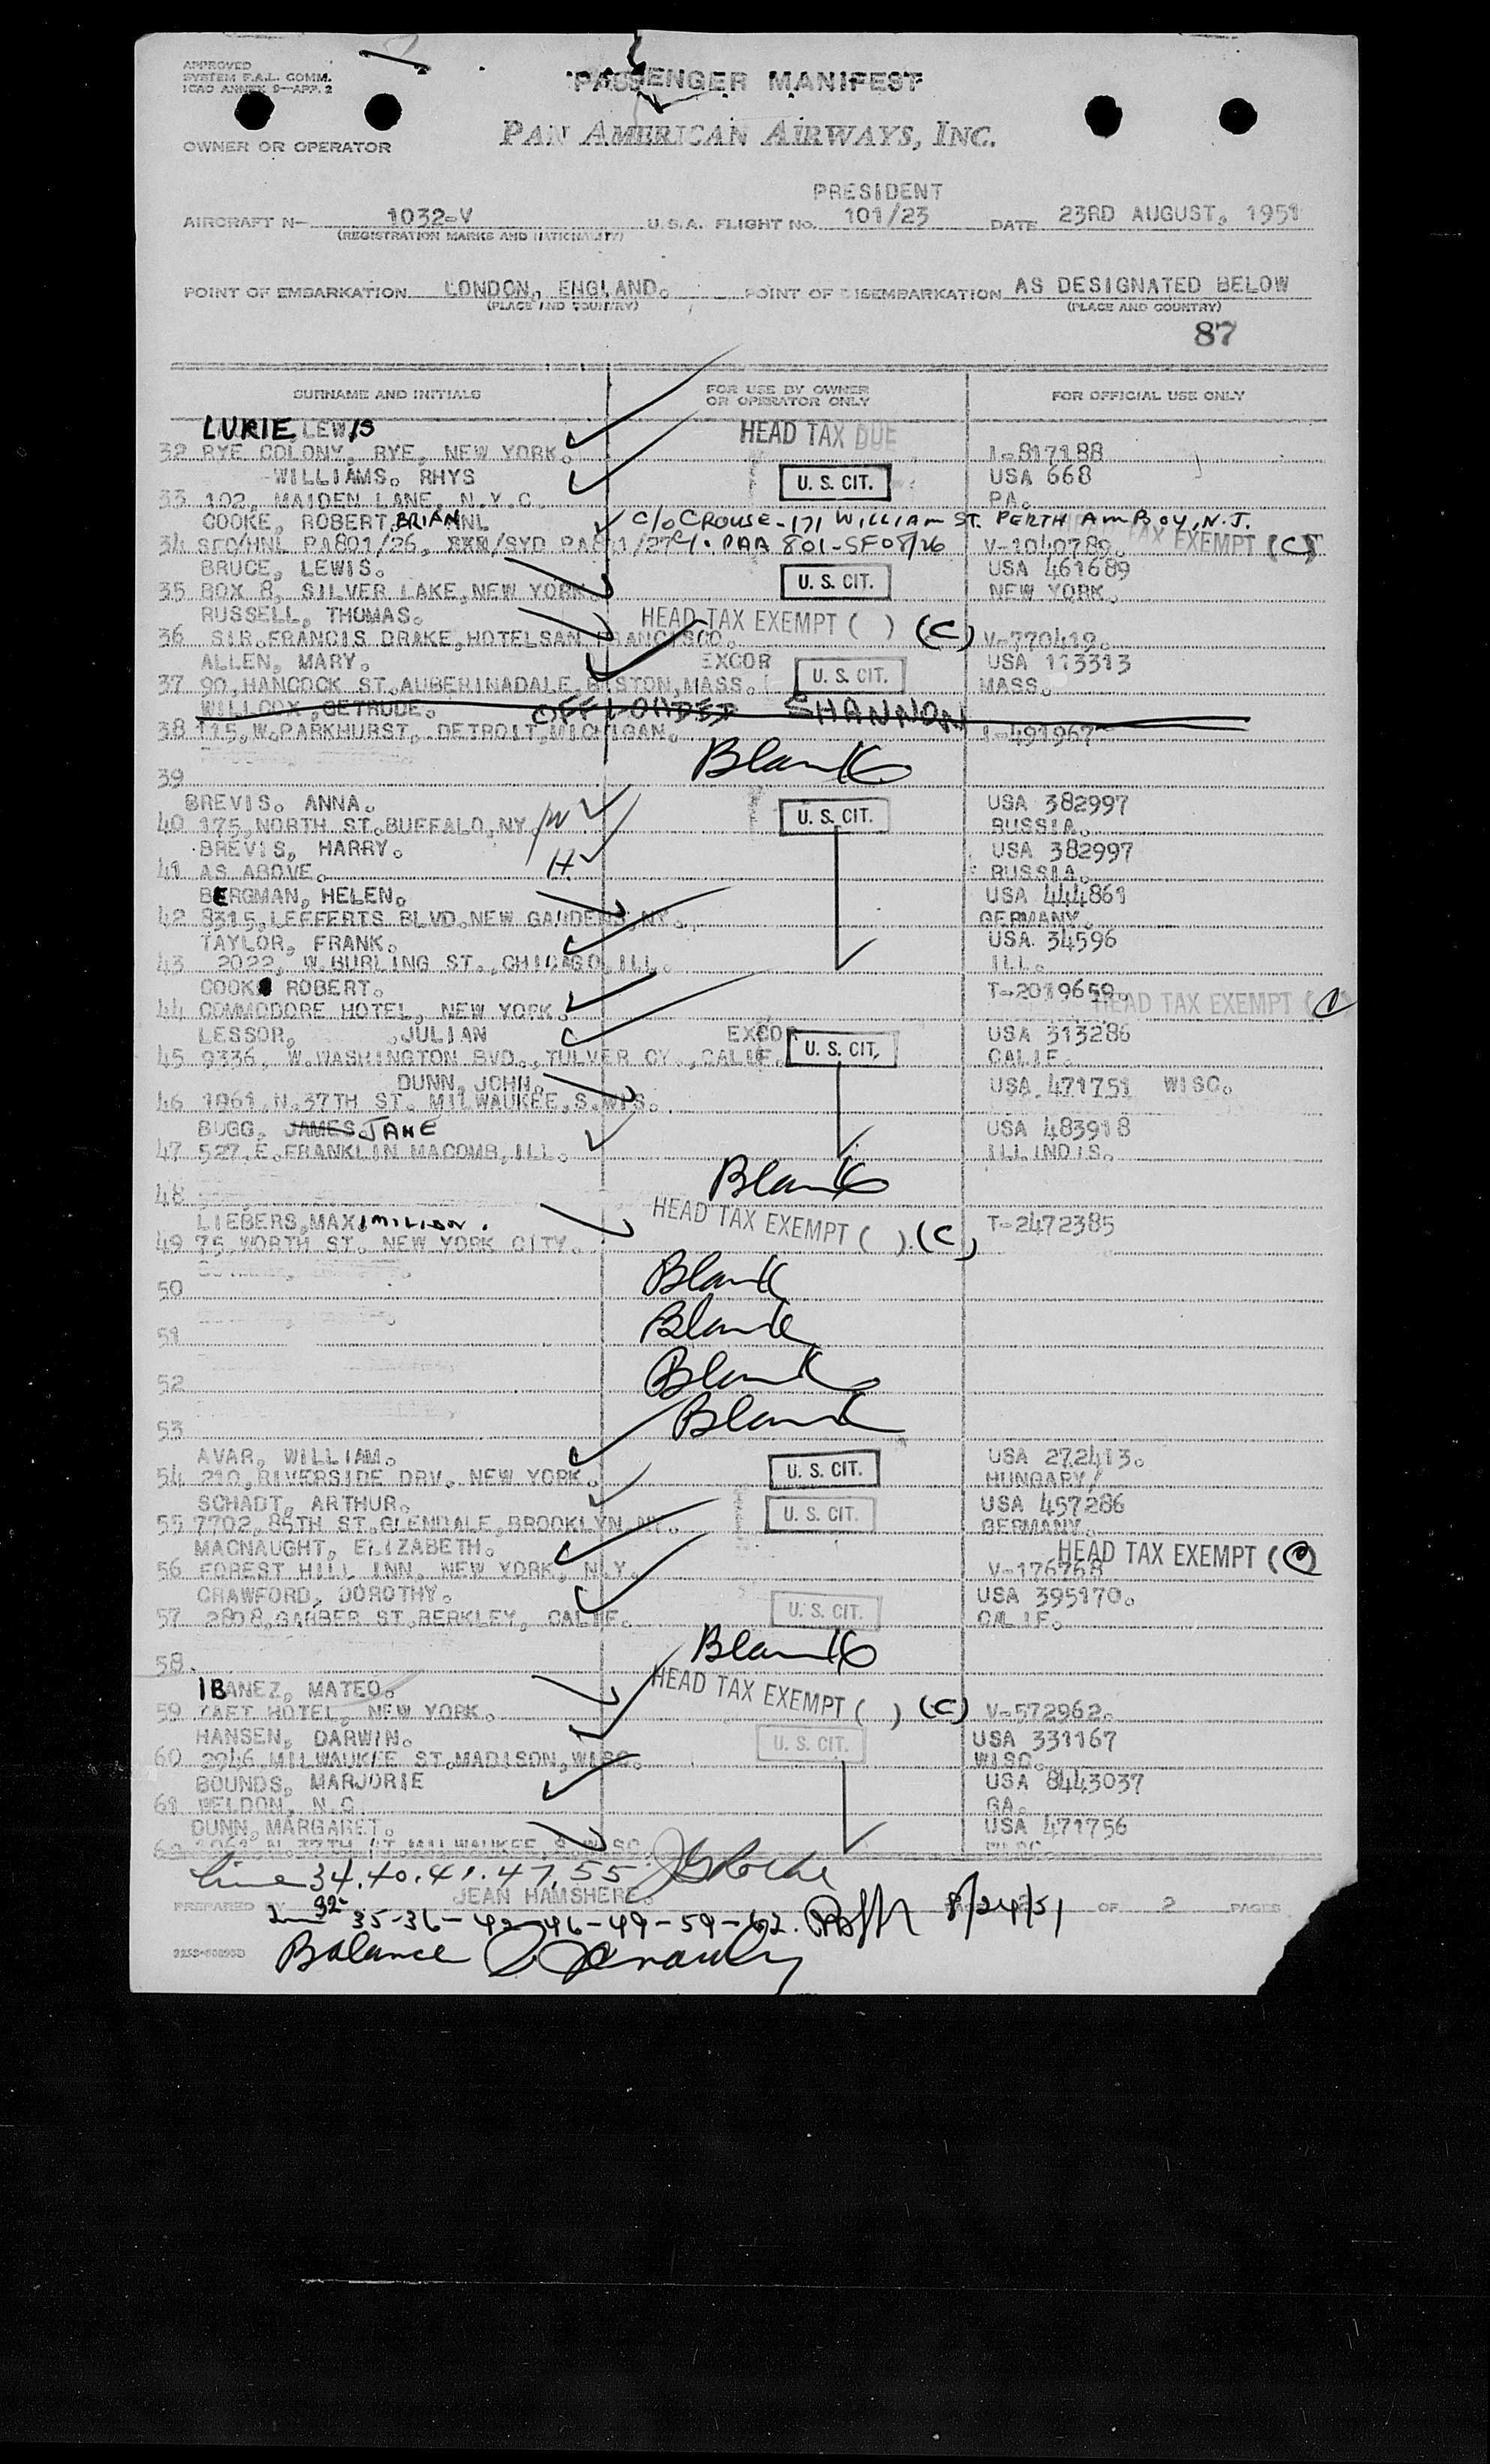 APPROVED
SYSTEM F.A.L. COMM.
ICAO ANNEX 9—APP. 2
PASSENGER MANIFEST
OWNER OR OPERATOR
PAN AMERICAN AIRWAYS, INC.
PRESIDENT
AIRCRAFT N— 1032-V U.S.A. FLIGHT NO. 101/23 DATE 23RD AUGUST, 1951
(REGISTRATION MARKS AND NATIONALITY)
POINT OF EMBARKATION LONDON, ENGLAND. POINT OF DISEMBARKATION AS DESIGNATED BELOW
(PLACE AND COUNTRY) (PLACE AND COUNTRY)
87
SURNAME AND INITIALS FOR USE BY OWNER OR OPERATOR ONLY FOR OFFICIAL USE ONLY
LURIE, LEWIS HEAD TAX DUE
32 RYE COLONY, RYE, NEW YORK. I-817188
WILLIAMS. RHYS U. S. CIT. USA 668
33 102, MAIDEN LANE, N.Y.C. PA.
COOKE, ROBERT BRIAN HNL C/O CROUSE - 171 WILLIAM ST. PERTH AMBOY, N.J.
34 SFO/HNL PA801/26, /SYD PA801/27 PAA 801-SF 08/26 V-1040789. TAX EXEMPT (C)
BRUCE, LEWIS. U. S. CIT. USA 461689
35 BOX 8, SILVER LAKE, NEW YORK. NEW YORK.
RUSSELL, THOMAS. HEAD TAX EXEMPT ( ) (C)
36 SIR.FRANCIS DRAKE, HOTELSAN FRANCISCO. V-770419.
ALLEN, MARY. EXCOR U. S. CIT. USA 113313
37 90, HANCOCK ST.AUBERINADALE, BOSTON, MASS. MASS.
WILLCOX, GETRUDE. OFFLOADED SHANNON
38 115, W.PARKHURST, DETROIT, MICHIGAN. I-491967
Blank
39
BREVIS. ANNA. W U. S. CIT. USA 382997
40 175, NORTH ST.BUFFALO, NY. RUSSIA.
BREVIS, HARRY. H. USA 382997
41 AS ABOVE. RUSSIA.
BERGMAN, HELEN. USA 444861
42 8315, LEFFERTS BLVD.NEW GARDENS, NY. GERMANY.
TAYLOR, FRANK. USA 34596
43 2022, W.BURLING ST., CHICAGO, ILL. ILL.
COOK ROBERT. T-2019659.
44 COMMODORE HOTEL, NEW YORK. HEAD TAX EXEMPT (C)
LESSOR, JULIAN EXCOR U. S. CIT. USA 313286
45 9336, W.WASHINGTON BVD., TULVER CY., CALIF. CALIF.
DUNN, JOHN. USA 471751 WISC.
46 1961, N.37TH ST. MILWAUKEE, S.WIS.
BUGG, JAMES JANE USA 483918
47 527, E.FRANKLIN MACOMB, ILL. ILLINOIS.
Blank
48
LIEBERS, MAXIMILIAN. HEAD TAX EXEMPT ( ) (C) T-2472385
49 75, WORTH ST. NEW YORK CITY.
50 Blank
51 Blank
52 Blank
53 Blank
AVAR, WILLIAM. U. S. CIT. USA 272413.
54 210, RIVERSIDE DRV. NEW YORK. HUNGARY/
SCHADT, ARTHUR. U. S. CIT. USA 457286
55 7702, 85TH ST.GLENDALE, BROOKLYN NY. GERMANY.
MACNAUGHT, ELIZABETH. HEAD TAX EXEMPT (C)
56 FOREST HILL INN, NEW YORK, N.Y. V-176768
CRAWFORD, DOROTHY. U. S. CIT. USA 395170.
57 2808, GARBER ST.BERKLEY, CALIF. CALIF.
Blank
58
IBANEZ, MATEO. HEAD TAX EXEMPT ( ) (C)
59 TAFT HOTEL, NEW YORK. V-572962.
HANSEN, DARWIN. U. S. CIT. USA 331167
60 2946, MILWAUKEE ST.MADISON, WISC. WISC.
BOUNDS, MARJORIE USA 8443037
61 WELDON, N.C. GA.
DUNN, MARGARET. USA 471756
62 1961, N. 37TH ST.MILWAUKEE, S.WISC. WISC.
Line 34. 40. 41. 47. 55
PREPARED BY JEAN HAMSHERE. OF 2 PAGES
32- 35-36-42-46-49-59-62. 8/24/51
Balance